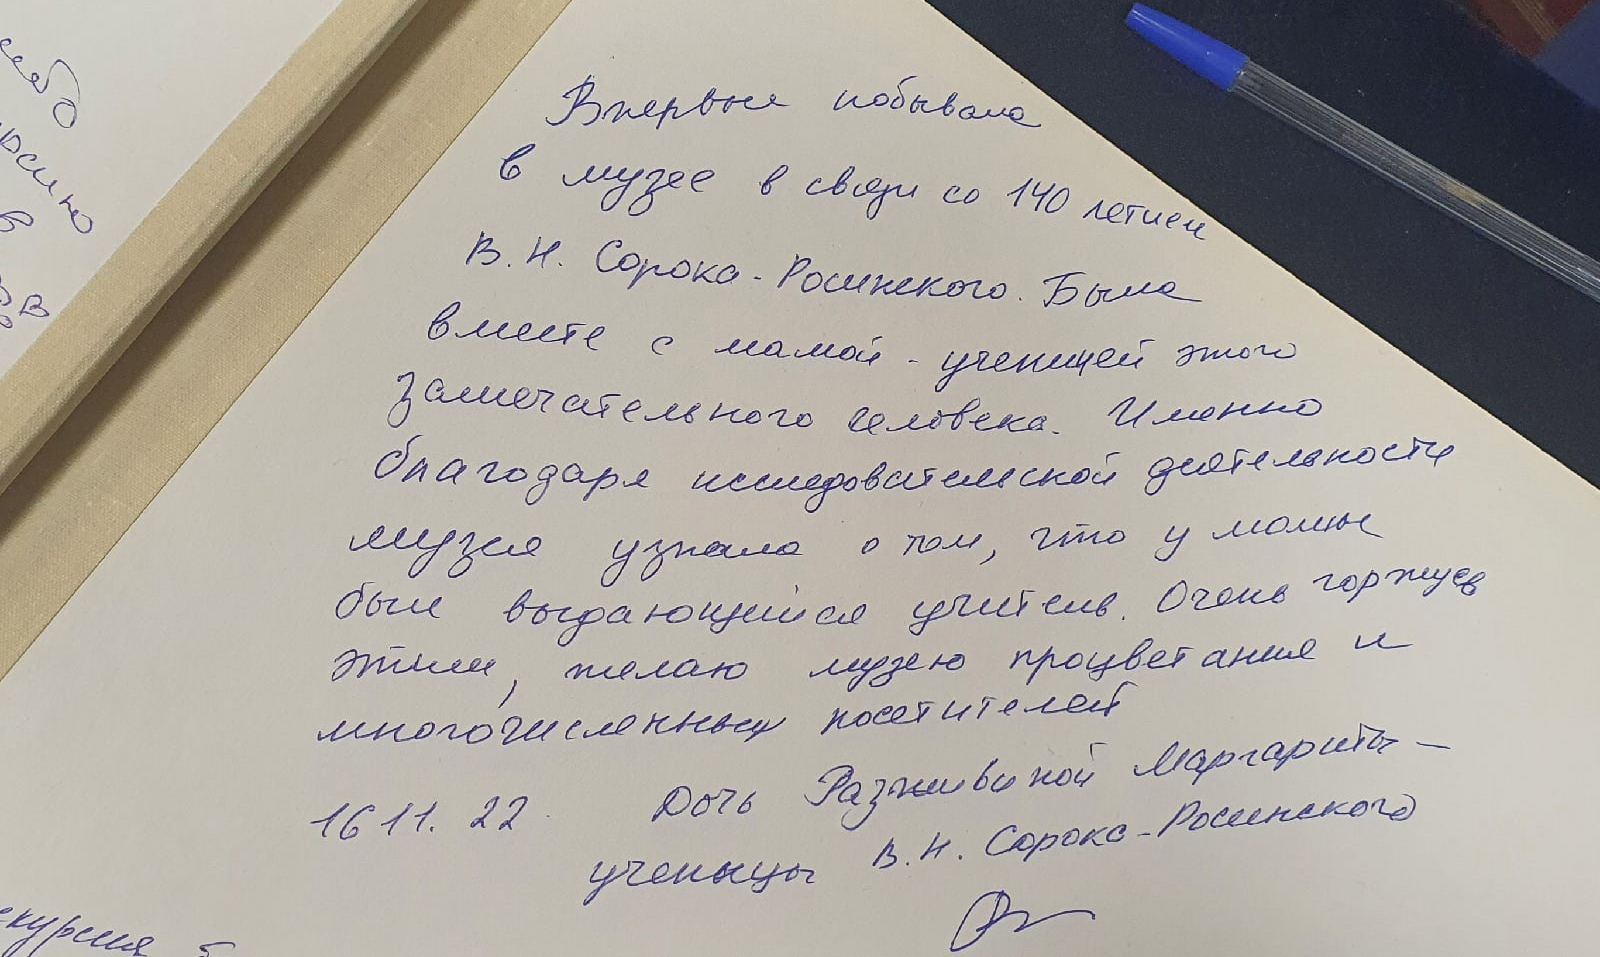 Впервые побывала
в музее в связи со 140 летием
В.Н. Сорока-Росинского. Была
вместе с мамой - ученицей этого
замечательного человека. Именно
благодаря исследовательской деятельности
музея узнала о том, что у мамы
был выдающийся учитель. Очень горжусь
этим, желаю музею процветания и
многочисленных посетителей
16 11. 22. Дочь Разживиной Маргариты -
ученицы В.Н. Сорока-Росинского
в
экскурсия